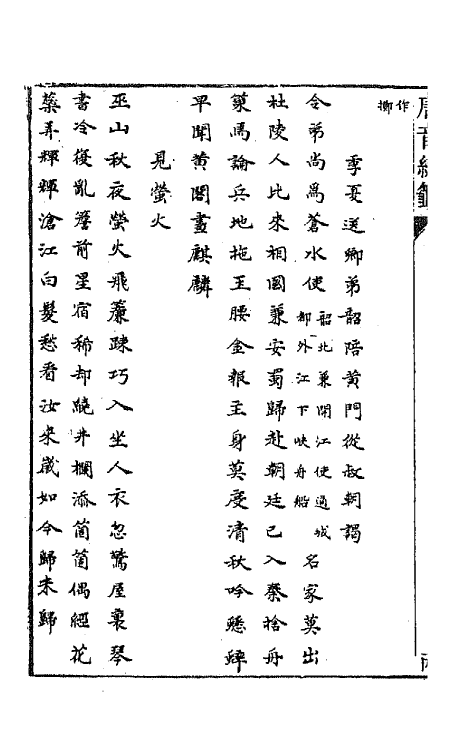 唐音統籤
作
柳
季夏送鄉弟韶陪黃門從叔朝謁
令弟尚爲蒼水使韶比兼開江使通成都外江下峽舟船名家莫出
杜陵人比來相國兼安蜀歸赴朝廷已入秦捨舟
策馬論兵地拖玉腰金報主身莫度清秋吟蟋蟀
早聞黃閣畫麒麟
見螢火
巫山秋夜螢火飛簾疎巧入坐人衣忽驚屋裏琴
書冷復亂簷前星宿稀却繞井欄添箇箇偶經花
蘂弄輝輝滄江白髮愁看汝來歲如今歸未歸